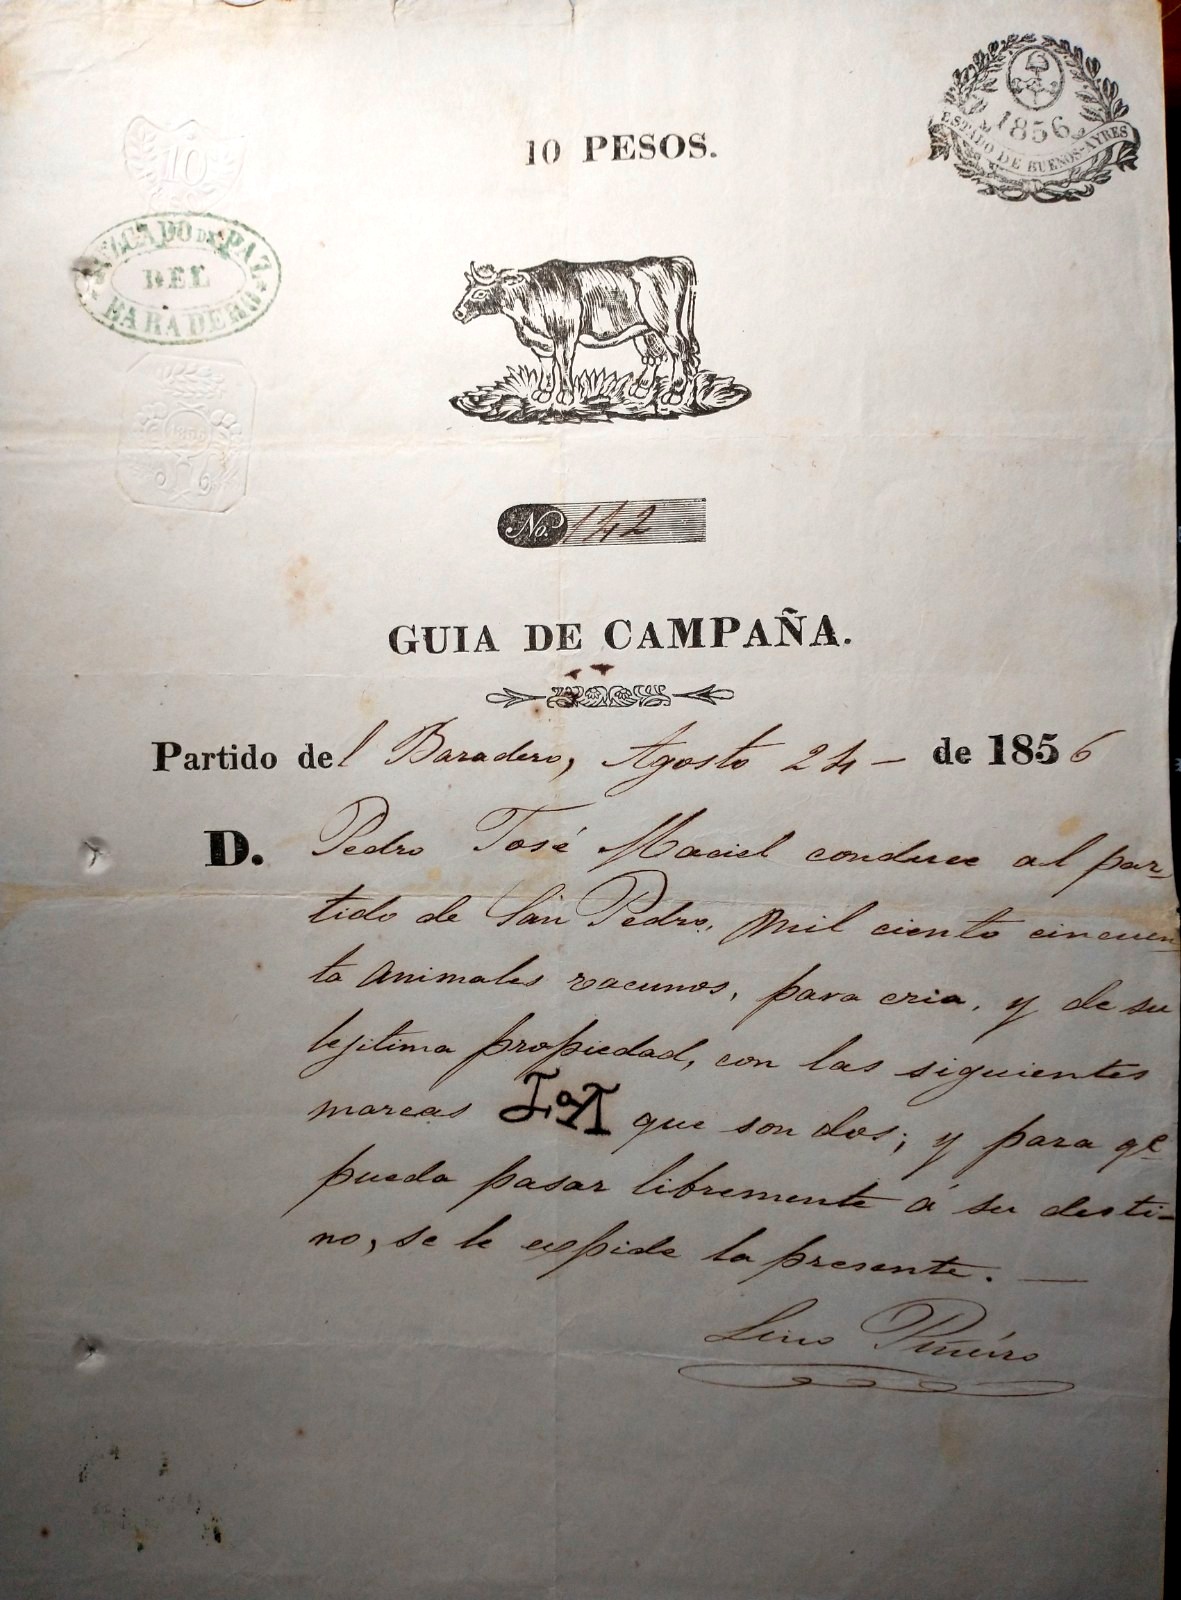 10 PESOS.
1856
ESTADO DE BUENOS-AYRES
10
JUZGADO DE PAZ
DEL
BARADERO
No. 142
GUIA DE CAMPAÑA.
Partido del Baradero, Agosto 24 - de 1856
D. Pedro José Maciel conduce al par-
tido de San Pedro, mil ciento cincuen-
ta animales vacunos, para cria, y de su
lejitima propiedad, con las siguientes
marcas que son dos; y para qe.
pueda pasar libremente á su desti-
no, se le espide la presente. —
Lino Piñeiro